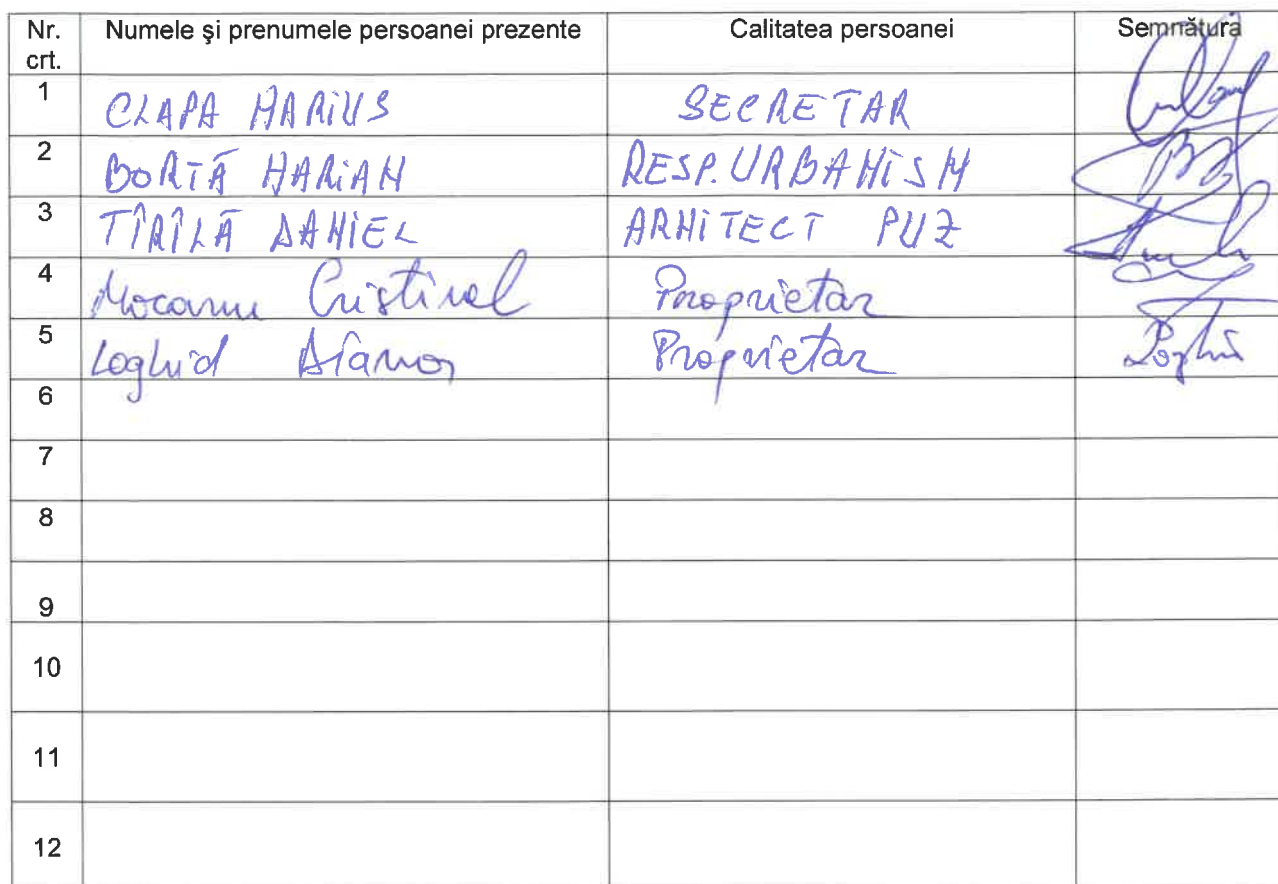 Nr. crt. Numele şi prenumele persoanei prezente Calitatea persoanei Semnătura
1 CLAPA MARIUS SECRETAR
2 BORTĂ MARIAN RESP. URBANISM
3 TÎRÎLĂ DANIEL ARHITECT PUZ
4 Mocanu Cristinel Proprietar
5 Loghid Proprietar
6
7
8
9
10
11
12